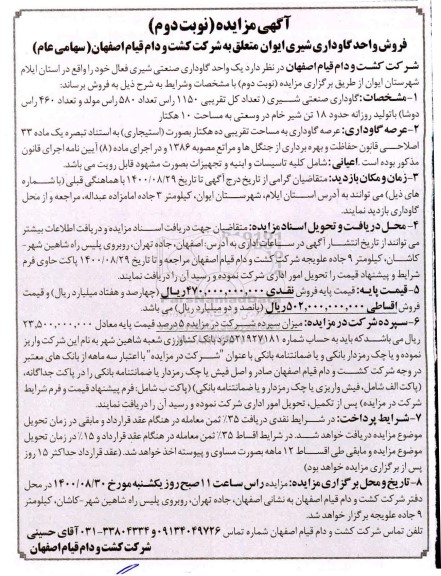 آگهی مزایده (نوبت دوم)
فروش واحد گاوداری شیری ایوان متعلق به شرکت کشت و دام قیام اصفهان (سهامی عام)
شرکت کشت و دام قیام اصفهان در نظر دارد یک واحد گاوداری صنعتی شیری فعال خود را واقع در استان ایلام
شهرستان ایوان از طریق برگزاری مزایده (نوبت دوم) با مشخصات وشرایط به شرح ذیل به فروش برساند:
۱-مشخصات: گاوداری صنعتی شیری ( تعداد کل تقریبی ۱۱۵۰ راس تعداد ۵۸۰ راس مولد و تعداد ۴۶۰ راس
دوشا) باتولید روزانه حدود ۱۸ تن شیر خام در وسعتی به مساحت ۱۰ هکتار
۲-عرصه گاوداری: عرصه گاوداری به مساحت تقریبی ده هکتار بصورت (استیجاری) به استناد تبصره یک ماده ۳۳
اصلاحی قانون حفاظت و بهره برداری از جنگل ها و مراتع مصوبه ۱۳۸۶ و در اجرای ماده (۸) آیین نامه اجرای قانون
مذکور بوده است. اعیانی: شامل کلیه تاسیسات و ابنیه و تجهیزات بصورت مشهود قابل رویت می باشد.
۳-زمان و مکان بازدید: متقاضیان گرامی از تاریخ درج آگهی تا تاریخ ۱۴۰۰/۰۸/۲۹ با هماهنگی قبلی (با شماره
های ذیل) می توانند به آدرس استان ایلام، شهرستان ایوان، کیلومتر ۳ جاده امامزاده عبداله، مراجعه و از محل
گاوداری بازدید نمایند.
۴- محل دریافت و تحویل اسناد مزایده: متقاضیان جهت دریافت اسناد مزایده و دریافت اطلاعات بیشتر
می توانند از تاریخ انتشار آگهی در ساعات اداری به آدرس: اصفهان، جاده تهران، روبروی پلیس راه شاهین شهر-
کاشان، کیلومتر ۹ جاده علویجه شرکت کشت و دام قیام اصفهان مراجعه و تا تاریخ ۱۴۰۰/۰۸/۲۹ پاکت حاوی فرم
شرایط و پیشنهاد قیمت را تحویل امور اداری شرکت نموده و رسید آن را دریافت نمایند.
۵-قیمت پایه: قیمت پایه فروش نقدی ۴۷۰,۰۰۰,۰۰۰,۰۰۰ ریال (چهارصد و هفتاد میلیارد ریال) و قیمت
فروش اقساطی ۵۰۲,۰۰۰,۰۰۰,۰۰۰ ریال (پانصد و دو میلیارد ریال) می باشد.
۶-سپرده شرکت در مزایده: میزان سپرده شرکت در مزایده ۵ درصد قیمت پایه معادل ۲۳,۵۰۰,۰۰۰,۰۰۰
ریال می باشد که باید به حساب شماره ۵۲۱۹۲۷۱۸۱ نزد بانک کشاورزی شعبه شاهین شهر به نام این شرکت واریز
نموده و یا چک رمزدار بانکی و یا ضمانتنامه بانکی با عنوان "شرکت در مزایده" با اعتبار سه ماهه از بانک های معتبر
در وجه شرکت کشت و دام قیام اصفهان صادر و اصل فیش یا چک رمزدار یا ضمانتنامه بانکی را در پاکت جداگانه،
(پاکت الف شامل، فیش واریزی یا چک رمزدار و یا ضمانتنامه بانکی) (پاکت ب شامل: فرم پیشنهاد قیمت و فرم شرایط
شرکت در مزایده) پس از تکمیل، تحویل امور اداری شرکت نموده و رسید آن را دریافت نمایند.
۷-شرایط پرداخت: در شرایط نقدی دریافت ۳۵٪ ثمن معامله در هنگام عقد قرارداد و مابقی در زمان تحویل
موضوع مزایده دریافت خواهد شد. در شرایط اقساط ۳۵٪ ثمن معامله در هنگام عقد قرارداد و ۱۵٪ در زمان تحویل
موضوع مزایده و مابقی طی اقساط ۱۲ ماهه بصورت مساوی و پیوسته اخذ خواهد شد. (عقد قرارداد حداکثر ۱۵ روز
پس از برگزاری مزایده خواهد بود)
۸-تاریخ و محل برگزاری مزایده: مزایده راس ساعت ۱۱ صبح روز یکشنبه مورخ ۱۴۰۰/۰۸/۳۰ در محل
دفتر شرکت کشت و دام قیام اصفهان به نشانی اصفهان، جاده تهران، روبروی پلیس راه شاهین شهر-کاشان، کیلومتر
۹ جاده علویجه برگزار خواهد شد.
تلفن تماس شرکت کشت و دام قیام اصفهان شماره تماس ۰۹۱۳۴۰۴۹۷۲۶ و ۳۳۸۰۴۳۳۴-۰۳۱ آقای حسینی
شرکت کشت و دام قیام اصفهان